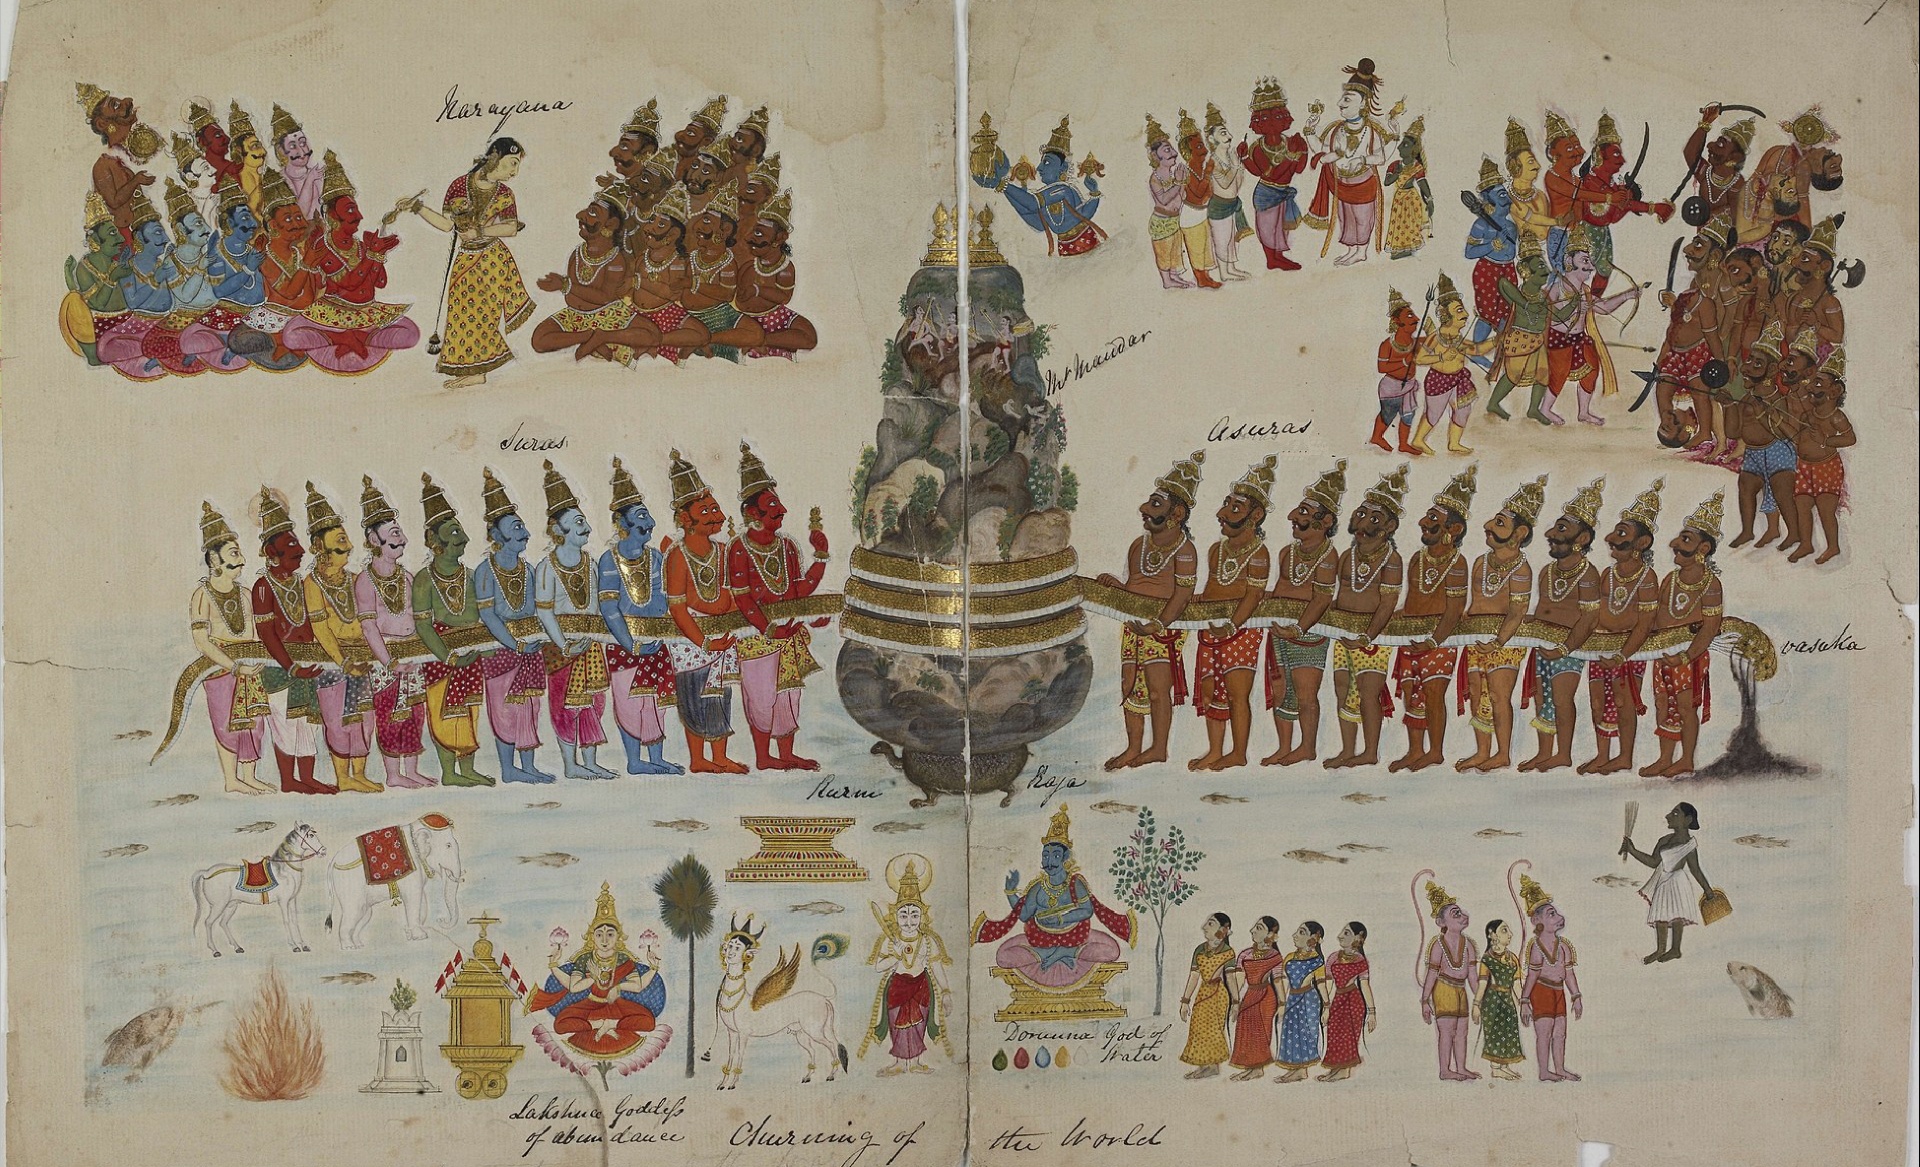 Narayana
Mt Mandar
Suras
Asuras
vasuka
Kurm Raja
Dorunna God of
Water
Lakshmee Goddess
of abundance
Churning of the World